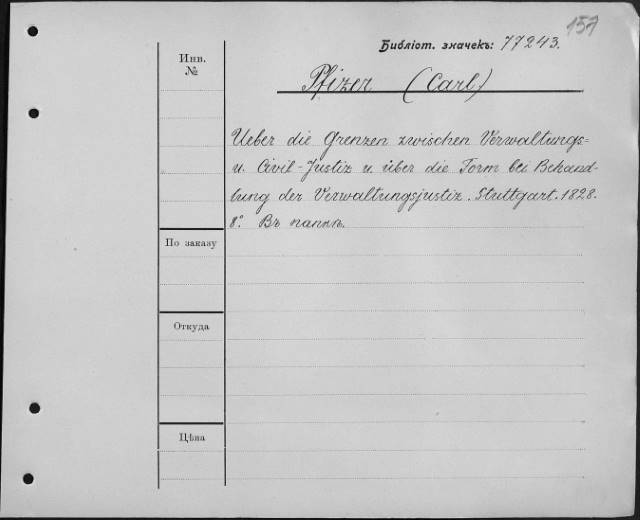 157
Библіот. значекъ: 77243.
Инв.
№
Pfizer (Carl)
Ueber die Grenzen zwischen Verwaltungs=
u. Civil-Justiz u. über die Form bei Behand-
lung der Verwaltungsjustiz. Stuttgart. 1828.
8°. Въ папкѣ.
По заказу
Откуда
Цѣна